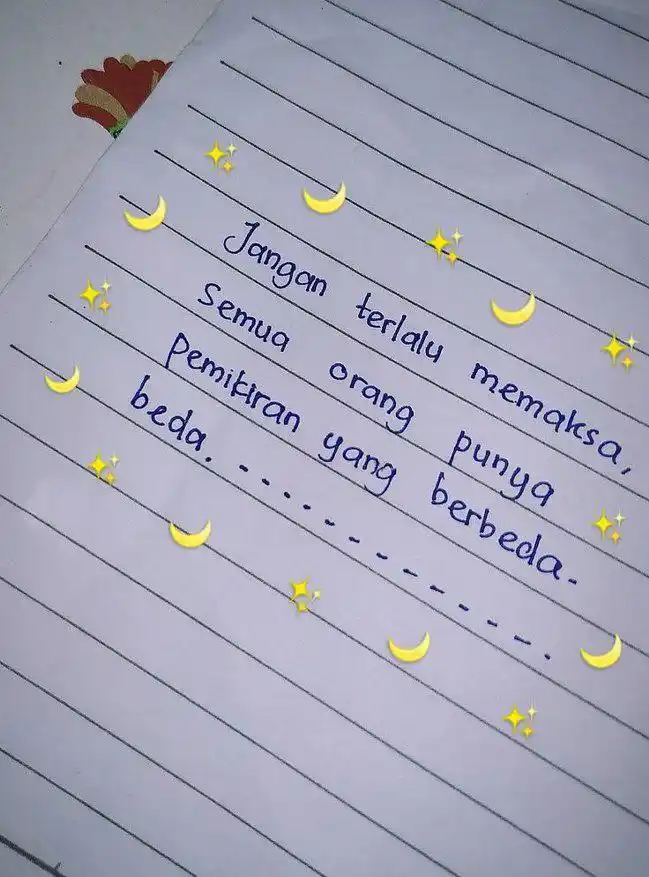 Jangan terlalu memaksa,
Semua orang punya
Pemikiran yang berbeda-
beda. - - - - - - - - - - - - - .